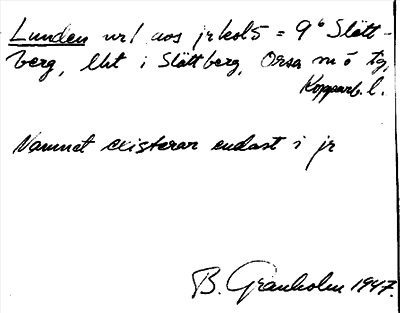 Lunden nr 1 avs jrkol 5 = 9⁶ Slätt-
berg, lht i Slättberg, Orsa sn ö tg,
Kopparb. l.
Namnet existerar endast i jr
B. Granholm 1947.